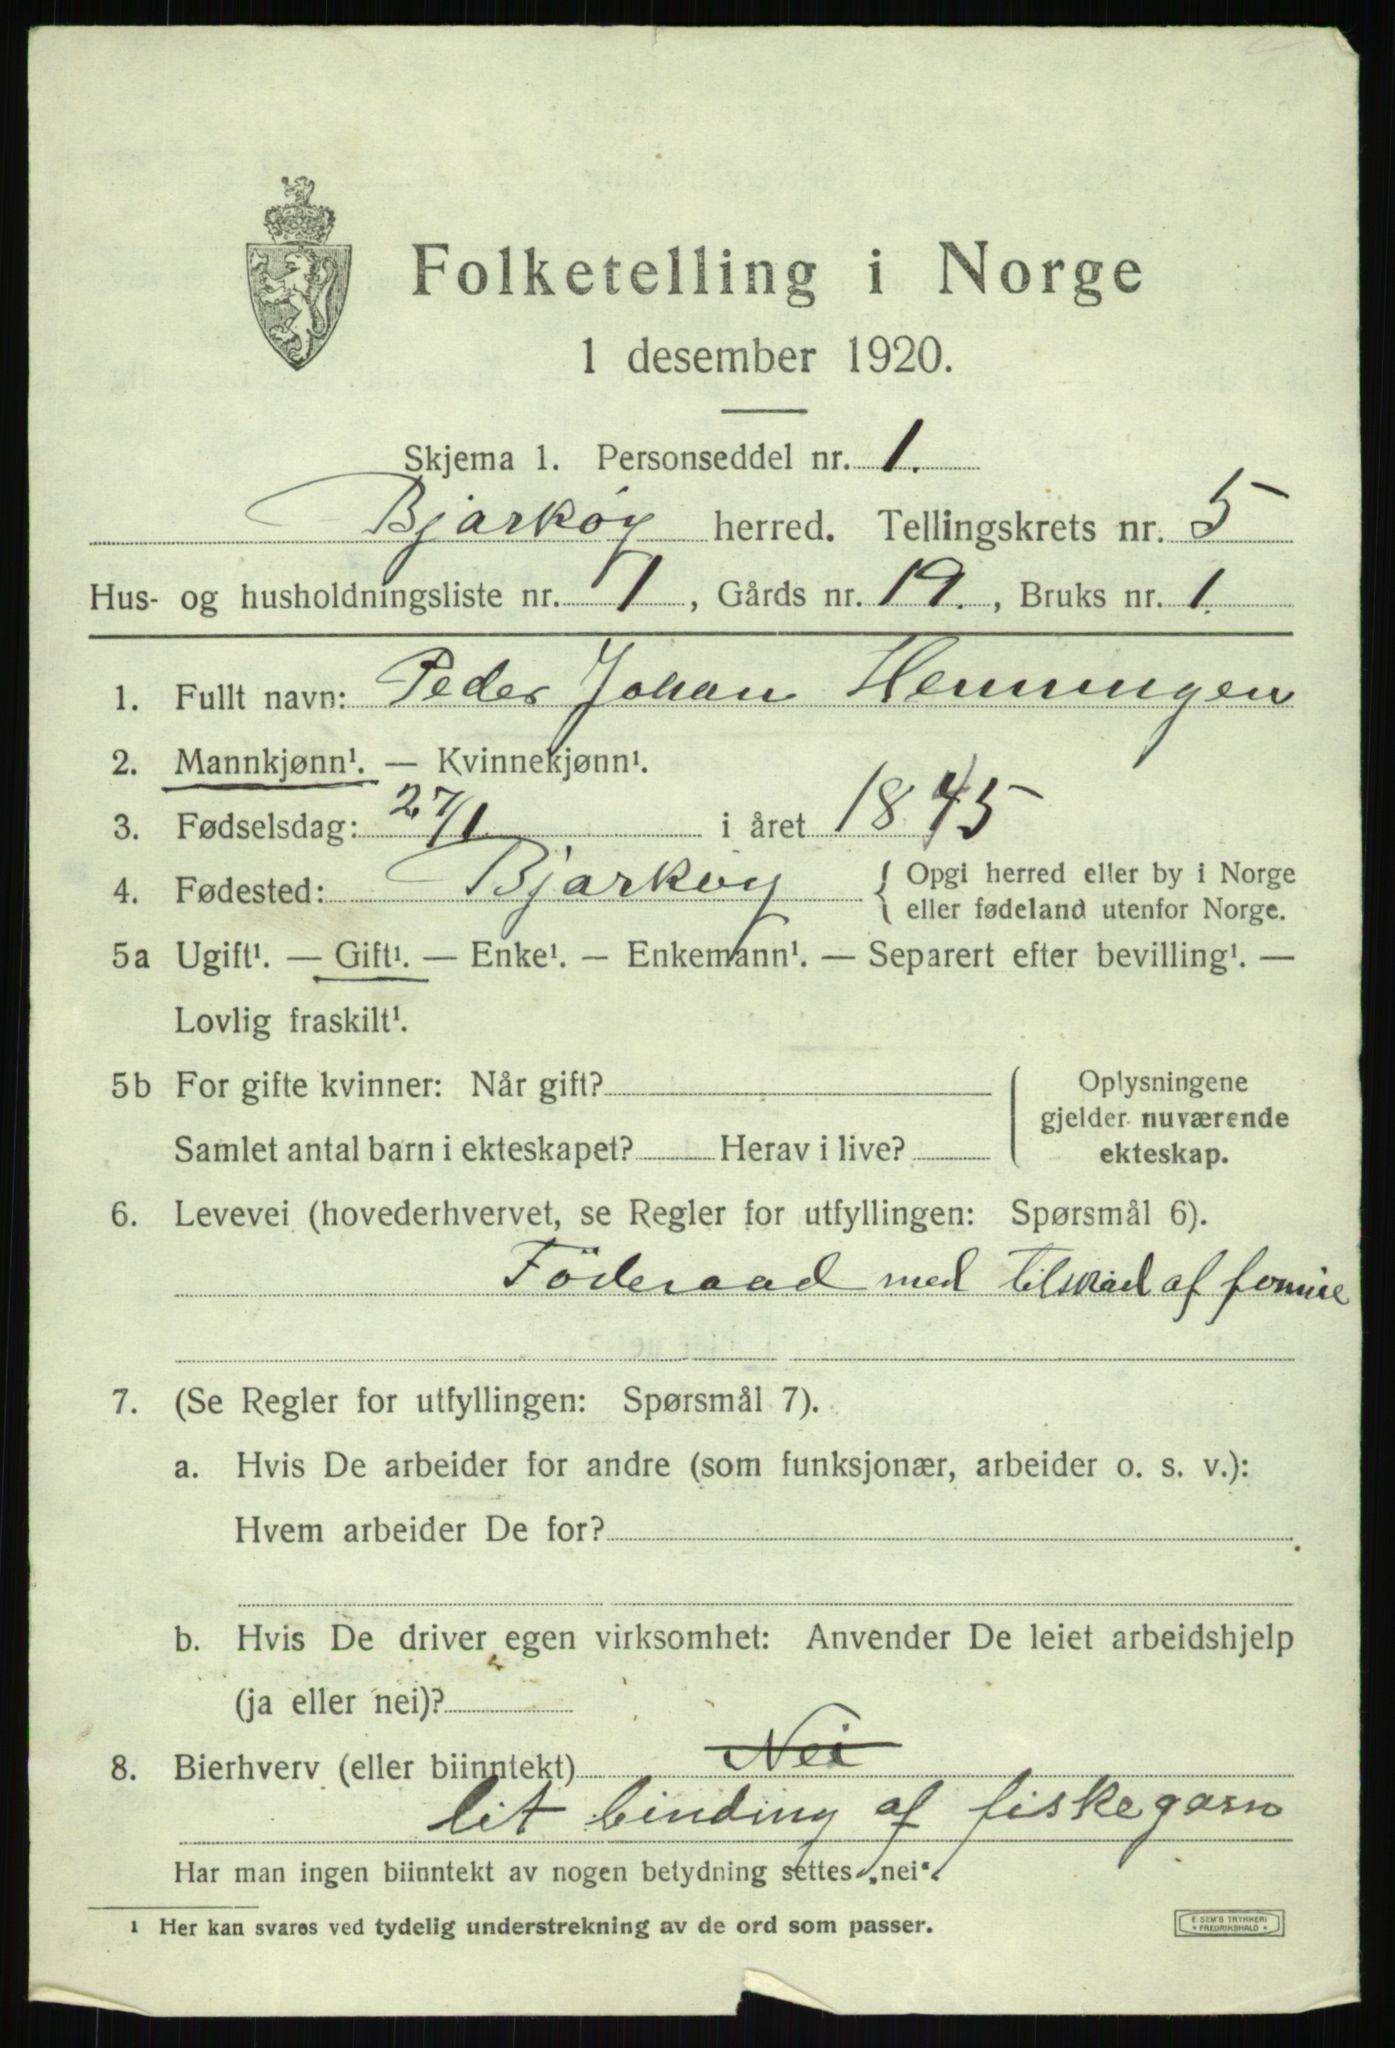 Folketelling i Norge
1 desember 1920.
Skjema 1. Personseddel nr. 1.
Bjarkøy herred. Tellingskrets nr. 5
Hus- og husholdningsliste nr. 7, Gårds nr. 19., Bruks nr. 1.
1. Fullt navn: Peder Johan Henningen
2. Mannkjønn¹. — Kvinnekjønn¹.
3. Fødselsdag: 27/1 i året 1845
4. Fødested: Bjarkøy { Opgi herred eller by i Norge
eller fødeland utenfor Norge.
5a Ugift¹. — Gift¹. — Enke¹. — Enkemann¹. — Separert efter bevilling¹. —
Lovlig fraskilt¹.
5b For gifte kvinner: Når gift?
Samlet antal barn i ekteskapet? Herav i live?
Oplysningene
gjelder nuværende
ekteskap.
6. Levevei (hovederhvervet, se Regler for utfyllingen: Spørsmål 6).
Föderaad med af
7. (Se Regler for utfyllingen: Spørsmål 7).
a. Hvis De arbeider for andre (som funksjonær, arbeider o. s. v.):
Hvem arbeider De for?
b. Hvis De driver egen virksomhet: Anvender De leiet arbeidshjelp
(ja eller nei)?
8. Bierhverv (eller biinntekt) Nei
lit binding af fiskegarn
Har man ingen biinntekt av nogen betydning settes „nei“.
1 Her kan svares ved tydelig understrekning av de ord som passer.
E. SEM'S TRYKKERI
* FREDRIKSHALD *